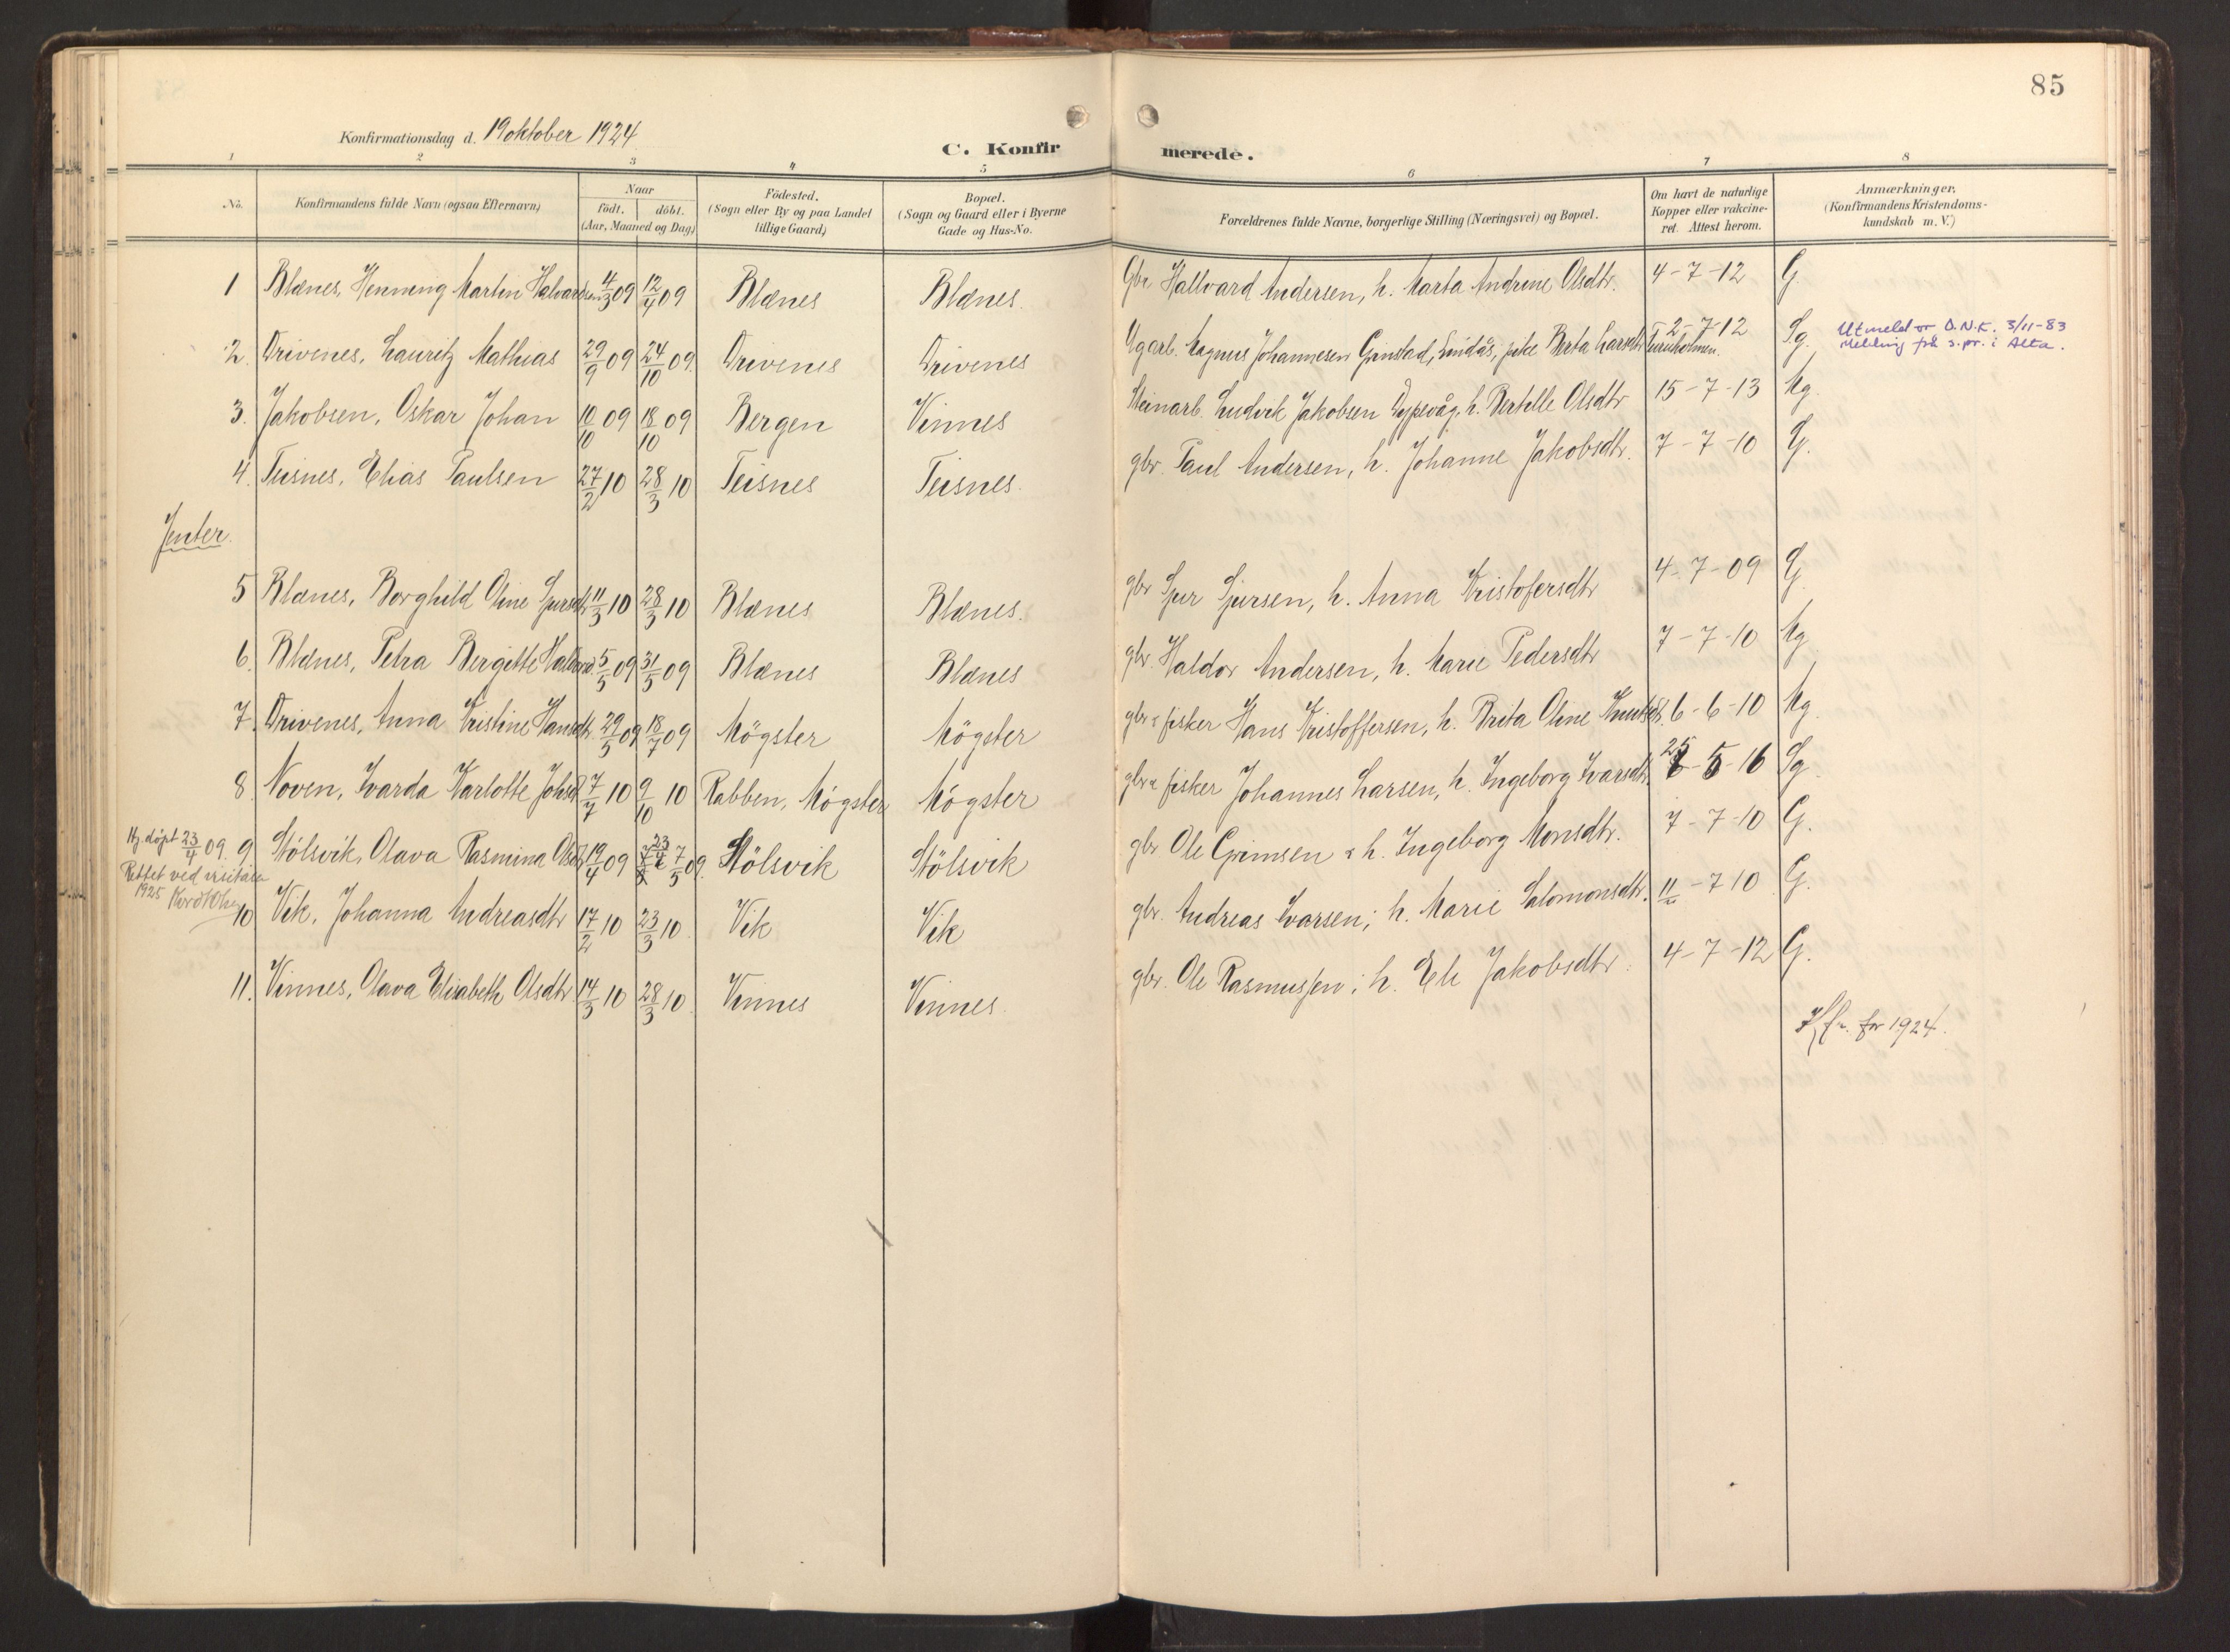 85
Konfirmationsdag d. 19 oktober 1924
C. Konfirmerede.
1 2 3 4 5 6 7 8
No. Konfirmandens fulde Navn (ogsaa Efternavn) Naar födt. döbt. (Aar, Maaned og Dag) Födested. (Sogn eller By og paa Landet tillige Gaard) Bopæl. (Sogn og Gaard eller i Byerne Gade og Hus-No. Forældrenes fulde Navne, borgerlige Stilling (Næringsvei) og Bopæl. Om havt de naturlige Kopper eller vakcineret. Attest herom. Anmærkninger. (Konfirmandens Kristendomskundskab m. V.)
1 Blænes, Henning Martin Halvardsen 4/3 09 12/4 09 Blænes Blænes. Gbr Hallvard Andersen, h. Marta Andrine Olsdtr. 4-7-12 G.
2. Drivenes, Lauritz Mathias 29/9 09 24/10 09 Drivenes Drivenes Ugarb. Magnus Johannesen Grinstad, Lindås, pike Berta Larsdtr 2-7-12 Sg. Utmeld or D.N.K. 3/11-83
Melding frå s.pr. i Alta.
3. Jakobsen, Oskar Johan 10/10 09 18/10 09 Bergen Vinnes Steinarb. Ludvik Jakobsen Dypevåg, h. Bertelle Olsdtr 15-7-13 Mg
4. Teisnes, Elias Paulsen 27/2 10 28/3 10 Teisnes Teisnes. gbr. Paul Andersen, h. Johanne Jakobsdtr. 7-7-10 G.
Jenter.
5 Blænes, Borghild Oline Sjursdtr 11/3 10 28/3 10 Blænes Blænes. gbr Sjur Sjursen, h. Anna Kristofersdtr 4-7-09 G
6. Blænes, Petra Bergitte 5/5 09 31/5 09 Blænes Blænes gbr. Haldor Andersen, h. Marie Pedersdtr 7-7-10 Mg
7. Drivenes, Anna Kristine Hansdtr 29/5 09 18/7 09 Mögster Mögster gbr & fisker Hans Kristoffersen, h. Brita Oline Knutsdtr. 6-6-10 Mg
8. Noven, Ivarda Karlotte Johsd 7/7 10 9/10 10 Rabben, Mögster Mögster gbr & fisker Johannes Larsen, h. Ingeborg Ivarsdtr. 25-5-16 Sg
Hj.döpt 23/4 09. 9 Stölsvik, Olava Rasmina Olsd 19/4 09 23/4 7/5 09. Stölsvik Stölsvik gbr Ole Grimsen & h. Ingeborg Monsdtr. 7-7-10 G.
Rettet ved visitas
1925
10 Vik, Johanna Andreasdtr 17/2 10 23/3 10 Vik Vik gbr. Andreas Ivarsen; h. Marie Salomonsdtr. 11-7 10 G.
11. Vinnes, Olava Elisabeth Olsdtr 14/3 10 28/3 10 Vinnes Vinnes. gbr. Ole Rasmussen; h. Eli Jakobsdtr. 4-7-12 G.
for 1924.